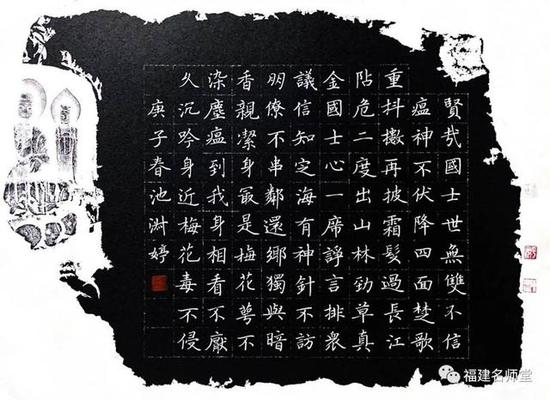 賢哉國士世無雙不信
瘟神不伏降四面楚歌
重抖擻再披霜髮過長江
阽危二度出山林勁草真
金國士心一席諍言排衆
議信知定海有神針不訪
明僚不串鄰還鄉獨與暗
香親潔身最是梅花萼不
染塵瘟到我身相看不厭
久沉吟身近梅花毒不侵
庚子春池淑婷
福建名师堂